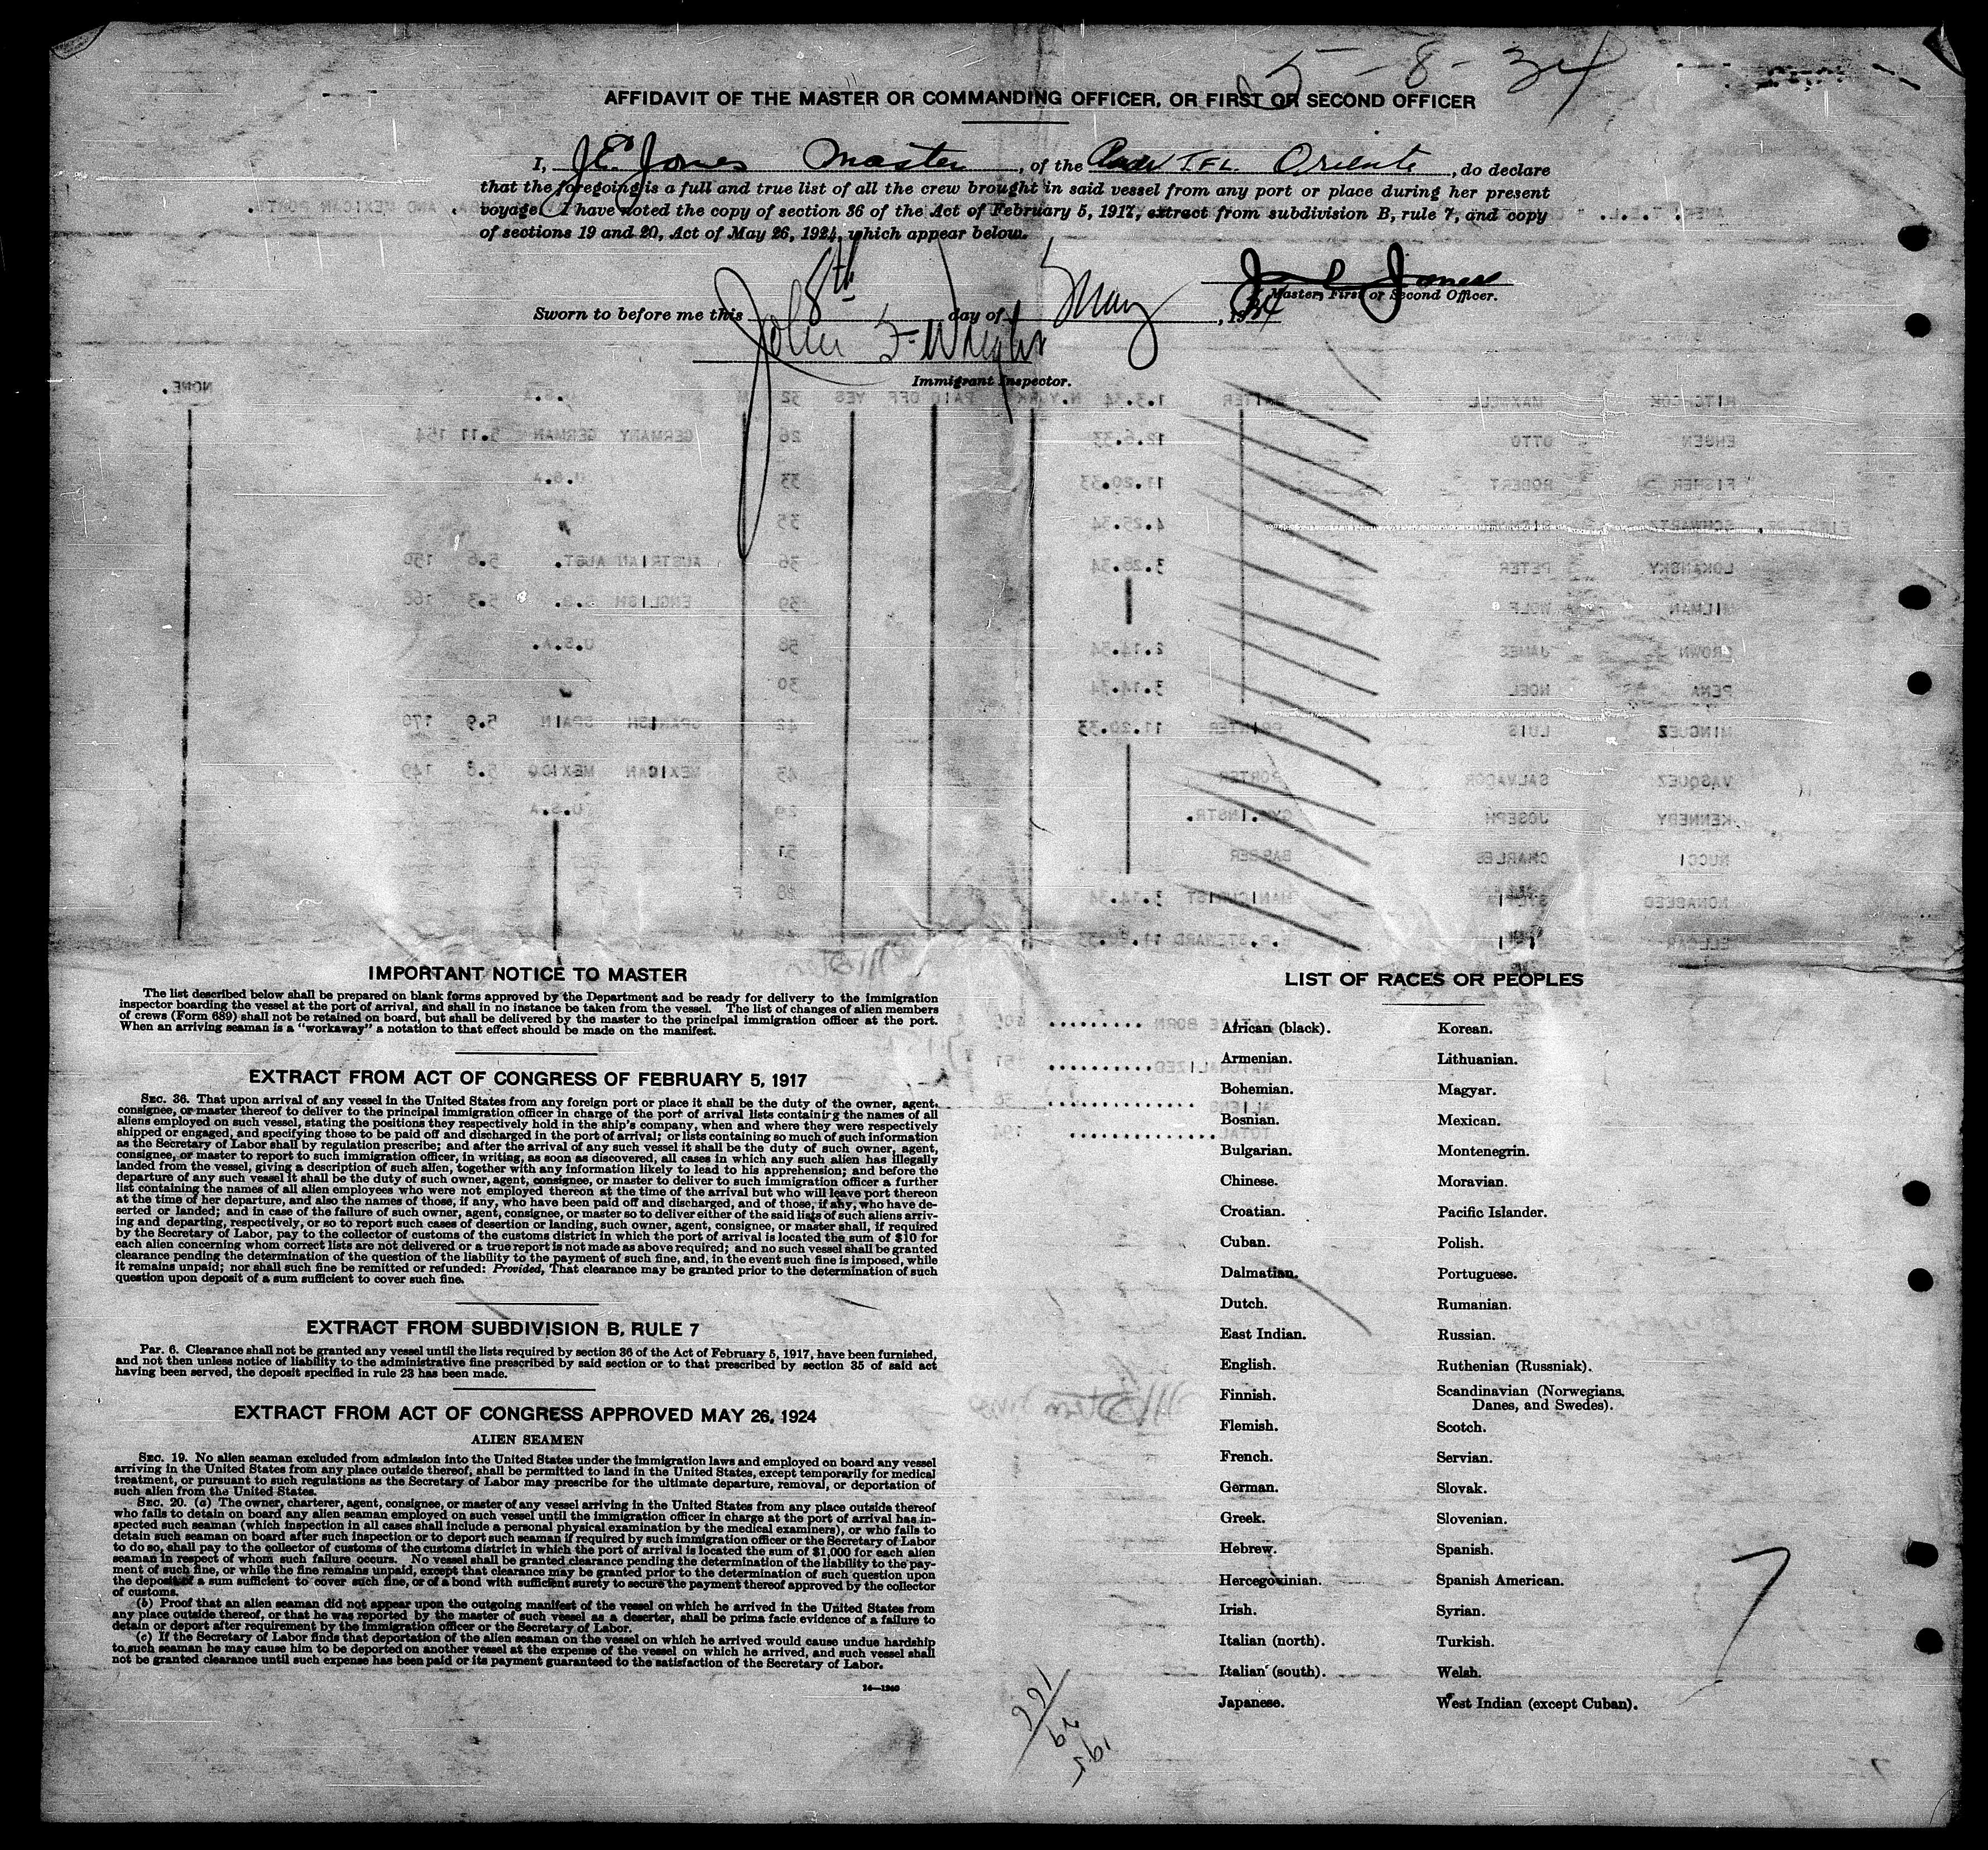 5-8-34
AFFIDAVIT OF THE MASTER OR COMMANDING OFFICER, OR FIRST OR SECOND OFFICER
I, J.E. Jones Master, of the T.E.L. Oriente, do declare
that the foregoing is a full and true list of all the crew brought in said vessel from any port or place during her present
voyage. I have noted the copy of section 36 of the Act of February 5, 1917, extract from subdivision B, rule 7, and copy
of sections 19 and 20, Act of May 26, 1924, which appear below.
J E Jones
Master, First or Second Officer.
Sworn to before me this 8th day of May, 1934
John F. Wright
Immigrant Inspector.
NONE. U.S.A. M 32 YES PAID OFF N.YORK 1.3.34 WAITER MAXWELL HITCHCOCK
154 5.11 GERMAN GERMANY 26 12.6.33 OTTO EHSEN
U.S.A. 33 11.20.33 ROBERT FISHER
" 35 4.25.34 SCHWARTZ
150 5.6 AUST. AUSTRIAN 36 3.28.34 PETER LOKANSKY
168 5.3 ENGLISH 39 WOLF MILMAN
U.S.A. 58 2.14.34 JAMES CROWN
" 30 3.14.34 NOEL PENA
170 5.9 SPAIN SPANISH 42 11.20.33 PRINTER LUIS MINGUEZ
149 5.8 MEXICO MEXICAN 43 PORTER SALVADOR VASQUEZ
U.S.A 29 GYM.INSTR. JOSEPH KENNEDY
51 BARBER CHARLES NUCCI
F 28 3.14.34 MANICURIST
M 11.20.33 STEWARD
IMPORTANT NOTICE TO MASTER
The list described below shall be prepared on blank forms approved by the Department and be ready for delivery to the immigration
inspector boarding the vessel at the port of arrival, and shall in no instance be taken from the vessel. The list of changes of alien members
of crews (Form 689) shall not be retained on board, but shall be delivered by the master to the principal immigration officer at the port.
When an arriving seaman is a "workaway" a notation to that effect should be made on the manifest.
EXTRACT FROM ACT OF CONGRESS OF FEBRUARY 5, 1917
SEC. 36. That upon arrival of any vessel in the United States from any foreign port or place it shall be the duty of the owner, agent,
consignee, or master thereof to deliver to the principal immigration officer in charge of the port of arrival lists containing the names of all
aliens employed on such vessel, stating the positions they respectively hold in the ship's company, when and where they were respectively
shipped or engaged, and specifying those to be paid off and discharged in the port of arrival; or lists containing so much of such information
as the Secretary of Labor shall by regulation prescribe; and after the arrival of any such vessel it shall be the duty of such owner, agent,
consignee, or master to report to such immigration officer, in writing, as soon as discovered, all cases in which any such alien has illegally
landed from the vessel, giving a description of such alien, together with any information likely to lead to his apprehension; and before the
departure of any such vessel it shall be the duty of such owner, agent, consignee, or master to deliver to such immigration officer a further
list containing the names of all alien employees who were not employed thereon at the time of the arrival but who will leave port thereon
at the time of her departure, and also the names of those, if any, who have been paid off and discharged, and of those, if any, who have de-
serted or landed; and in case of the failure of such owner, agent, consignee, or master so to deliver either of the said lists of such aliens arriv-
ing and departing, respectively, or so to report such cases of desertion or landing, such owner, agent, consignee, or master shall, if required
by the Secretary of Labor, pay to the collector of customs of the customs district in which the port of arrival is located the sum of $10 for
each alien concerning whom correct lists are not delivered or a true report is not made as above required; and no such vessel shall be granted
clearance pending the determination of the question of the liability to the payment of such fine, and, in the event such fine is imposed, while
it remains unpaid; nor shall such fine be remitted or refunded: Provided, That clearance may be granted prior to the determination of such
question upon deposit of a sum sufficient to cover such fine.
EXTRACT FROM SUBDIVISION B, RULE 7
Par. 6. Clearance shall not be granted any vessel until the lists required by section 36 of the Act of February 5, 1917, have been furnished,
and not then unless notice of liability to the administrative fine prescribed by said section or to that prescribed by section 35 of said act
having been served, the deposit specified in rule 23 has been made.
EXTRACT FROM ACT OF CONGRESS APPROVED MAY 26, 1924
ALIEN SEAMEN
SEC. 19. No alien seaman excluded from admission into the United States under the immigration laws and employed on board any vessel
arriving in the United States from any place outside thereof, shall be permitted to land in the United States, except temporarily for medical
treatment, or pursuant to such regulations as the Secretary of Labor may prescribe for the ultimate departure, removal, or deportation of
such alien from the United States.
SEC. 20. (a) The owner, charterer, agent, consignee, or master of any vessel arriving in the United States from any place outside thereof
who fails to detain on board any alien seaman employed on such vessel until the immigration officer in charge at the port of arrival has in-
spected such seaman (which inspection in all cases shall include a personal physical examination by the medical examiners), or who fails to
detain such seaman on board after such inspection or to deport such seaman if required by such immigration officer or the Secretary of Labor
to do so, shall pay to the collector of customs of the customs district in which the port of arrival is located the sum of $1,000 for each alien
seaman in respect of whom such failure occurs. No vessel shall be granted clearance pending the determination of the liability to the pay-
ment of such fine, or while the fine remains unpaid, except that clearance may be granted prior to the determination of such question upon
the deposit of a sum sufficient to cover such fine, or of a bond with sufficient surety to secure the payment thereof approved by the collector
of customs.
(b) Proof that an alien seaman did not appear upon the outgoing manifest of the vessel on which he arrived in the United States from
any place outside thereof, or that he was reported by the master of such vessel as a deserter, shall be prima facie evidence of a failure to
detain or deport after requirement by the immigration officer or the Secretary of Labor.
(c) If the Secretary of Labor finds that deportation of the alien seaman on the vessel on which he arrived would cause undue hardship
to such seaman he may cause him to be deported on another vessel at the expense of the vessel on which he arrived, and such vessel shall
not be granted clearance until such expense has been paid or its payment guaranteed to the satisfaction of the Secretary of Labor.
14—1240
LIST OF RACES OR PEOPLES
African (black).
Armenian.
Bohemian.
Bosnian.
Bulgarian.
Chinese.
Croatian.
Cuban.
Dalmatian.
Dutch.
East Indian.
English.
Finnish.
Flemish.
French.
German.
Greek.
Hebrew.
Hercegovinian.
Irish.
Italian (north).
Italian (south).
Japanese.
Korean.
Lithuanian.
Magyar.
Mexican.
Montenegrin.
Moravian.
Pacific Islander.
Polish.
Portuguese.
Rumanian.
Russian.
Ruthenian (Russniak).
Scandinavian (Norwegians,
Danes, and Swedes).
Scotch.
Servian.
Slovak.
Slovenian.
Spanish.
Spanish American.
Syrian.
Turkish.
Welsh.
West Indian (except Cuban).
7